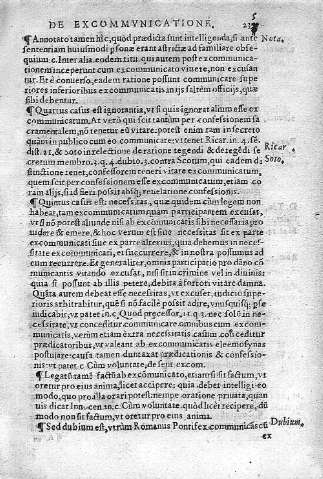 DE EXCOMMVNICATIONE.
¶ Annotato tamen hîc, quòd prædicta sunt intelligenda, si ante Nota.
sententiam huiusmodi psonæ erant astrictæ ad familiare obse-
quium c. Inter alia. eadem titu. qui autem post excommunica-
tionem inceperunt cum excommunicato viuere, non excusan-
tur. Et è conuerso, eadem ratione possunt communicare supe-
riores inferioribus excommunicatis in ijs saltem officijs, quæ
sibi debentur.
¶ Quartus casus est ignorantia, vt si quis ignorat alium esse ex
communicatum. At verò qui scit tantùm per confessionem sa
cramentalem, nõ tenetur eũ vitare, potest enim tam in secreto
quàm in publico cum eo communicare, vt tenet Ricar. in. 4. se Ricar
dist. 21. & soto in relectione de ratione tegendi & detegẽdi se Soto.
cretum membro. 3. q. 4. dubio. 3. contra Scotum, qui eadem di
stinctione tenet, confessorem teneri vitare excommunicatum,
quem scit per confessionem esse excommunicatum, etiam co
ram alijs, si id fiere possit absq; reuelatione confessionis.
¶ Quintus casus est necessitas, quæ quidem cùm legem non
habeat, tam excommunicatum quàm participantem excusat,
vt si nõ potest aliunde nisi ab excommunicatis sibi necessaria pro
uidere & emere, & hoc verum est siue necessitas sit ex parte
excommunicati siue ex parte alterius, quia debemus in neces-
sitate excommunicati, ei succurrere, & in nostra possumus ad
eum recurrere. Et generaliter, omnis participatio pro damno cõ
municantis vitando excusat, nisi sit in crimine vel in diuinis:
quia si possunt ab illis petere, debita à fortiori vitare damna.
Quanta autem debeat esse necessitas, vt excuset, iudicio supe-
rioris arbitrabitur, quòd si nõ facilè possit adire, vnusquisq; pse
iudicabit,
cessitate, vt conceditur communicare omnibus cum excom-
municatis, verùm etiam extra necessitatis casum cõceditur
prædicatoribus, vt valeant ab excommunicatis eleemosynas
postulare causa tamen duntaxat prædicationis & confessio-
nis vt patet c. Cùm voluntate, de sent. excom.
¶ Legatũ tamẽ factũ ab excommunicato, etiamsi sit factum, vt
oretur pro eius anima, licet accipere: quia debet intelligi eo-
modo, quo pro illa orari potest: nempe oratione priuata, quan
uis dicat Inn. cen. in c. Cùm voluntate. quòd licet recipere, dũ
modo non sit factum, vt oretur pro eius anima.
¶ Sed dubium est, vtrùm Romanus Pontifex communicãs cũ Dubium.
ex